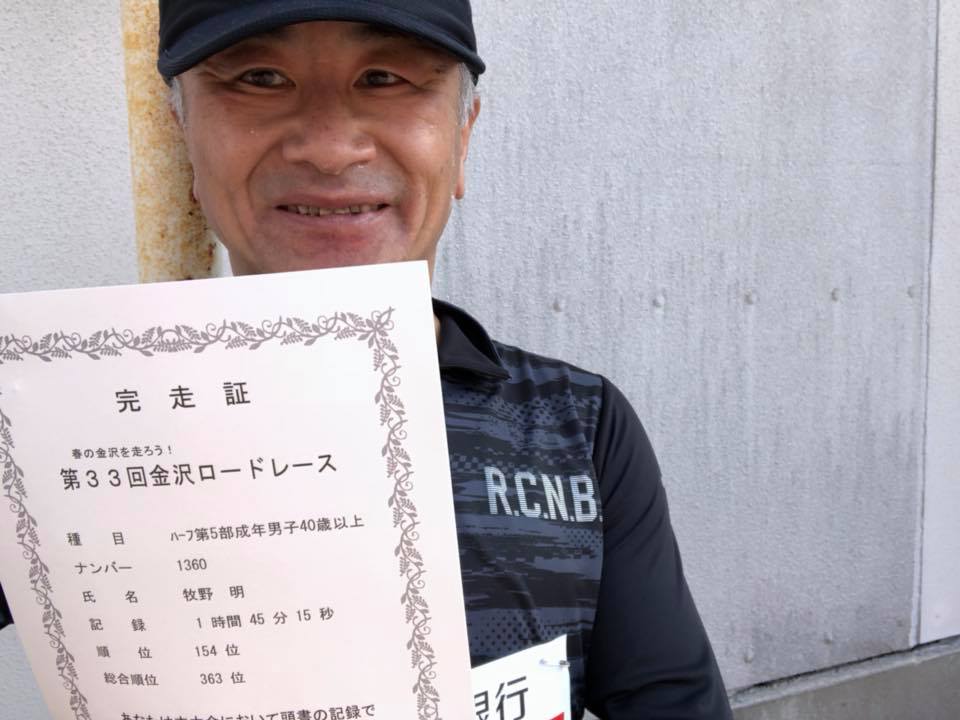 完走証
春の金沢を走ろう！
第３３回金沢ロードレース
種目 ﾊｰﾌ第5部成年男子40歳以上
ナンバー 1360
氏名 牧野 明
記録 1 時間 45 分 15 秒
順位 154 位
総合順位 363 位
において頭書の記録で
R.C.N.B.
銀行